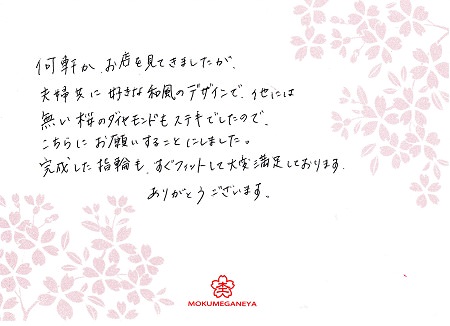 何軒か、お店を見てきましたが、
夫婦共に好きな和風のデザインで、他には
無い桜のダイヤモンドもステキでしたので、
こちらにお願いすることにしました。
完成した指輪も、すぐフィットして大変満足しております。
ありがとうございます。
MOKUMEGANEYA